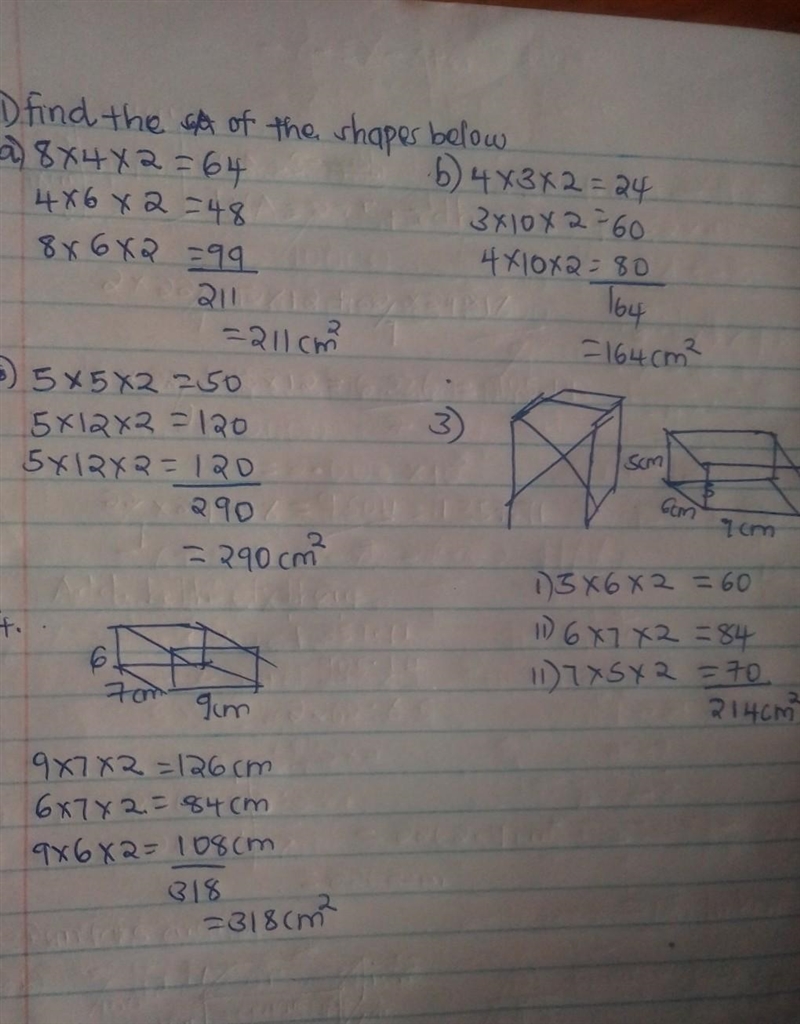 1) find the SA of the shapes below
a) 8×4×2 = 64
4×6×2 = 48
8×6×2 = 99
211
= 211cm²
b) 4×3×2 = 24
3×10×2 = 60
4×10×2 = 80
164
= 164cm²
5×5×2 = 50
5×12×2 = 120
5×12×2 = 120
290
= 290cm²
3)
5cm
6cm
7cm
i) 5×6×2 = 60
ii) 6×7×2 = 84
ii) 7×5×2 = 70
214cm²
4.
6
7cm
9cm
9×7×2 = 126cm
6×7×2 = 84cm
9×6×2 = 108cm
318
= 318cm²